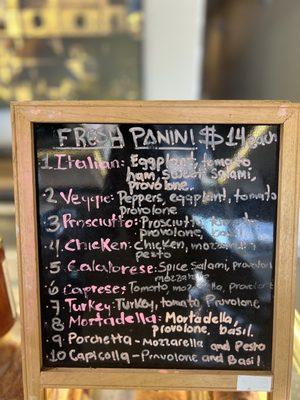 FRESH PANINI $14 each
1 Italian: Eggplant, tomato
ham, sweet salami,
provolone.
2 Veggie: Peppers, eggplant, tomato
provolone
3 Prosciutto: Prosciutto, tomato
provolone, basil
4 Chicken: Chicken, mozzarella
pesto
5 Calabrese: Spice Salami, provolone
mozzarella
6 Caprese: Tomato mozzarella, provolone
7 Turkey: Turkey, tomato, Provolone
8 Mortadella: Mortadella,
provolone, basil.
9 Porchetta - Mozzarella and Pesto
10 Capicolla - Provolone and Basil